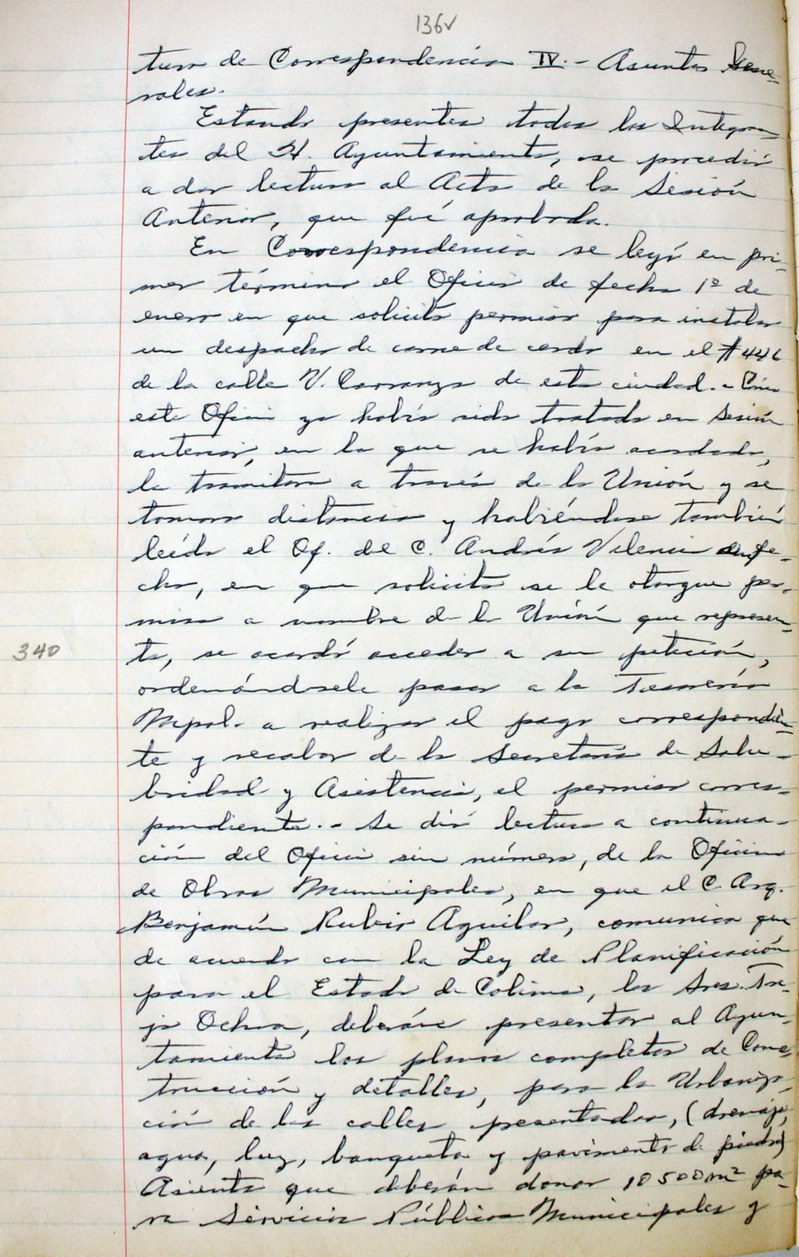 136v
tura de Correspondencia IV.- Asuntos Gene-
rales.
Estando presentes todos los Integran-
tes del H. Ayuntamiento, se procedió
a dar lectura al Acta de la Sesión
Anterior, que fué aprobada.
En Correspondencia se leyó en pri-
mer término el Oficio de fecha 1º de
enero en que solicita permiso para instalar
un despacho de carne de cerdo en el #446
de la calle V. Carranza de esta ciudad.-
este Oficio ya había sido tratado en Sesión
anterior, en la que se había acordado,
lo tramitara a través de la Unión y se
tomara distancia y habiéndose también
leído el Of. del C. Andrés Valencia
cha, en que solicita se le otorgue per-
miso a nombre de la Unión que represen-
ta, se acordó acceder a su petición,
340
ordenándosele pasar a la Tesorería
Mpal. a realizar el pago correspondien-
te y recabar de la Secretaría de Salu-
bridad y Asistencia, el permiso corres-
pondiente.- Se dió lectura a continua-
ción del Oficio sin número, de la Oficina
de Obras Municipales, en que el C. Arq.
Benjamín Rubio Aguilar, comunica que
de acuerdo con la Ley de Planificación
para el Estado de Colima, los Sres. Tre-
jo Ochoa, deberán presentar al Ayun-
tamiento los planos completos de Cons-
trucción y detalles, para la Urbaniza-
ción de las calles presentadas, (drenaje,
agua, luz, banqueta y pavimento de piedra)
Asienta que deberán donar 10500m² pa-
ra Servicios Públicos Municipales y